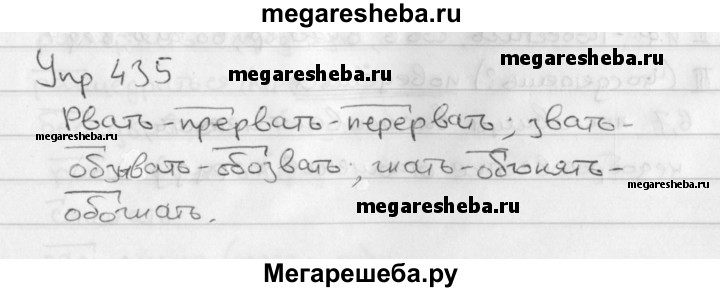 megaresheba.ru
Упр 435
megaresheba.ru
Рвать-прервать-перервать; звать-
megaresheba.ru
megaresheba.ru
обзывать-обозвать, гнать-обгонять-
megaresheba.ru
обогнать.
megaresheba.ru
Мегарешеба.ру